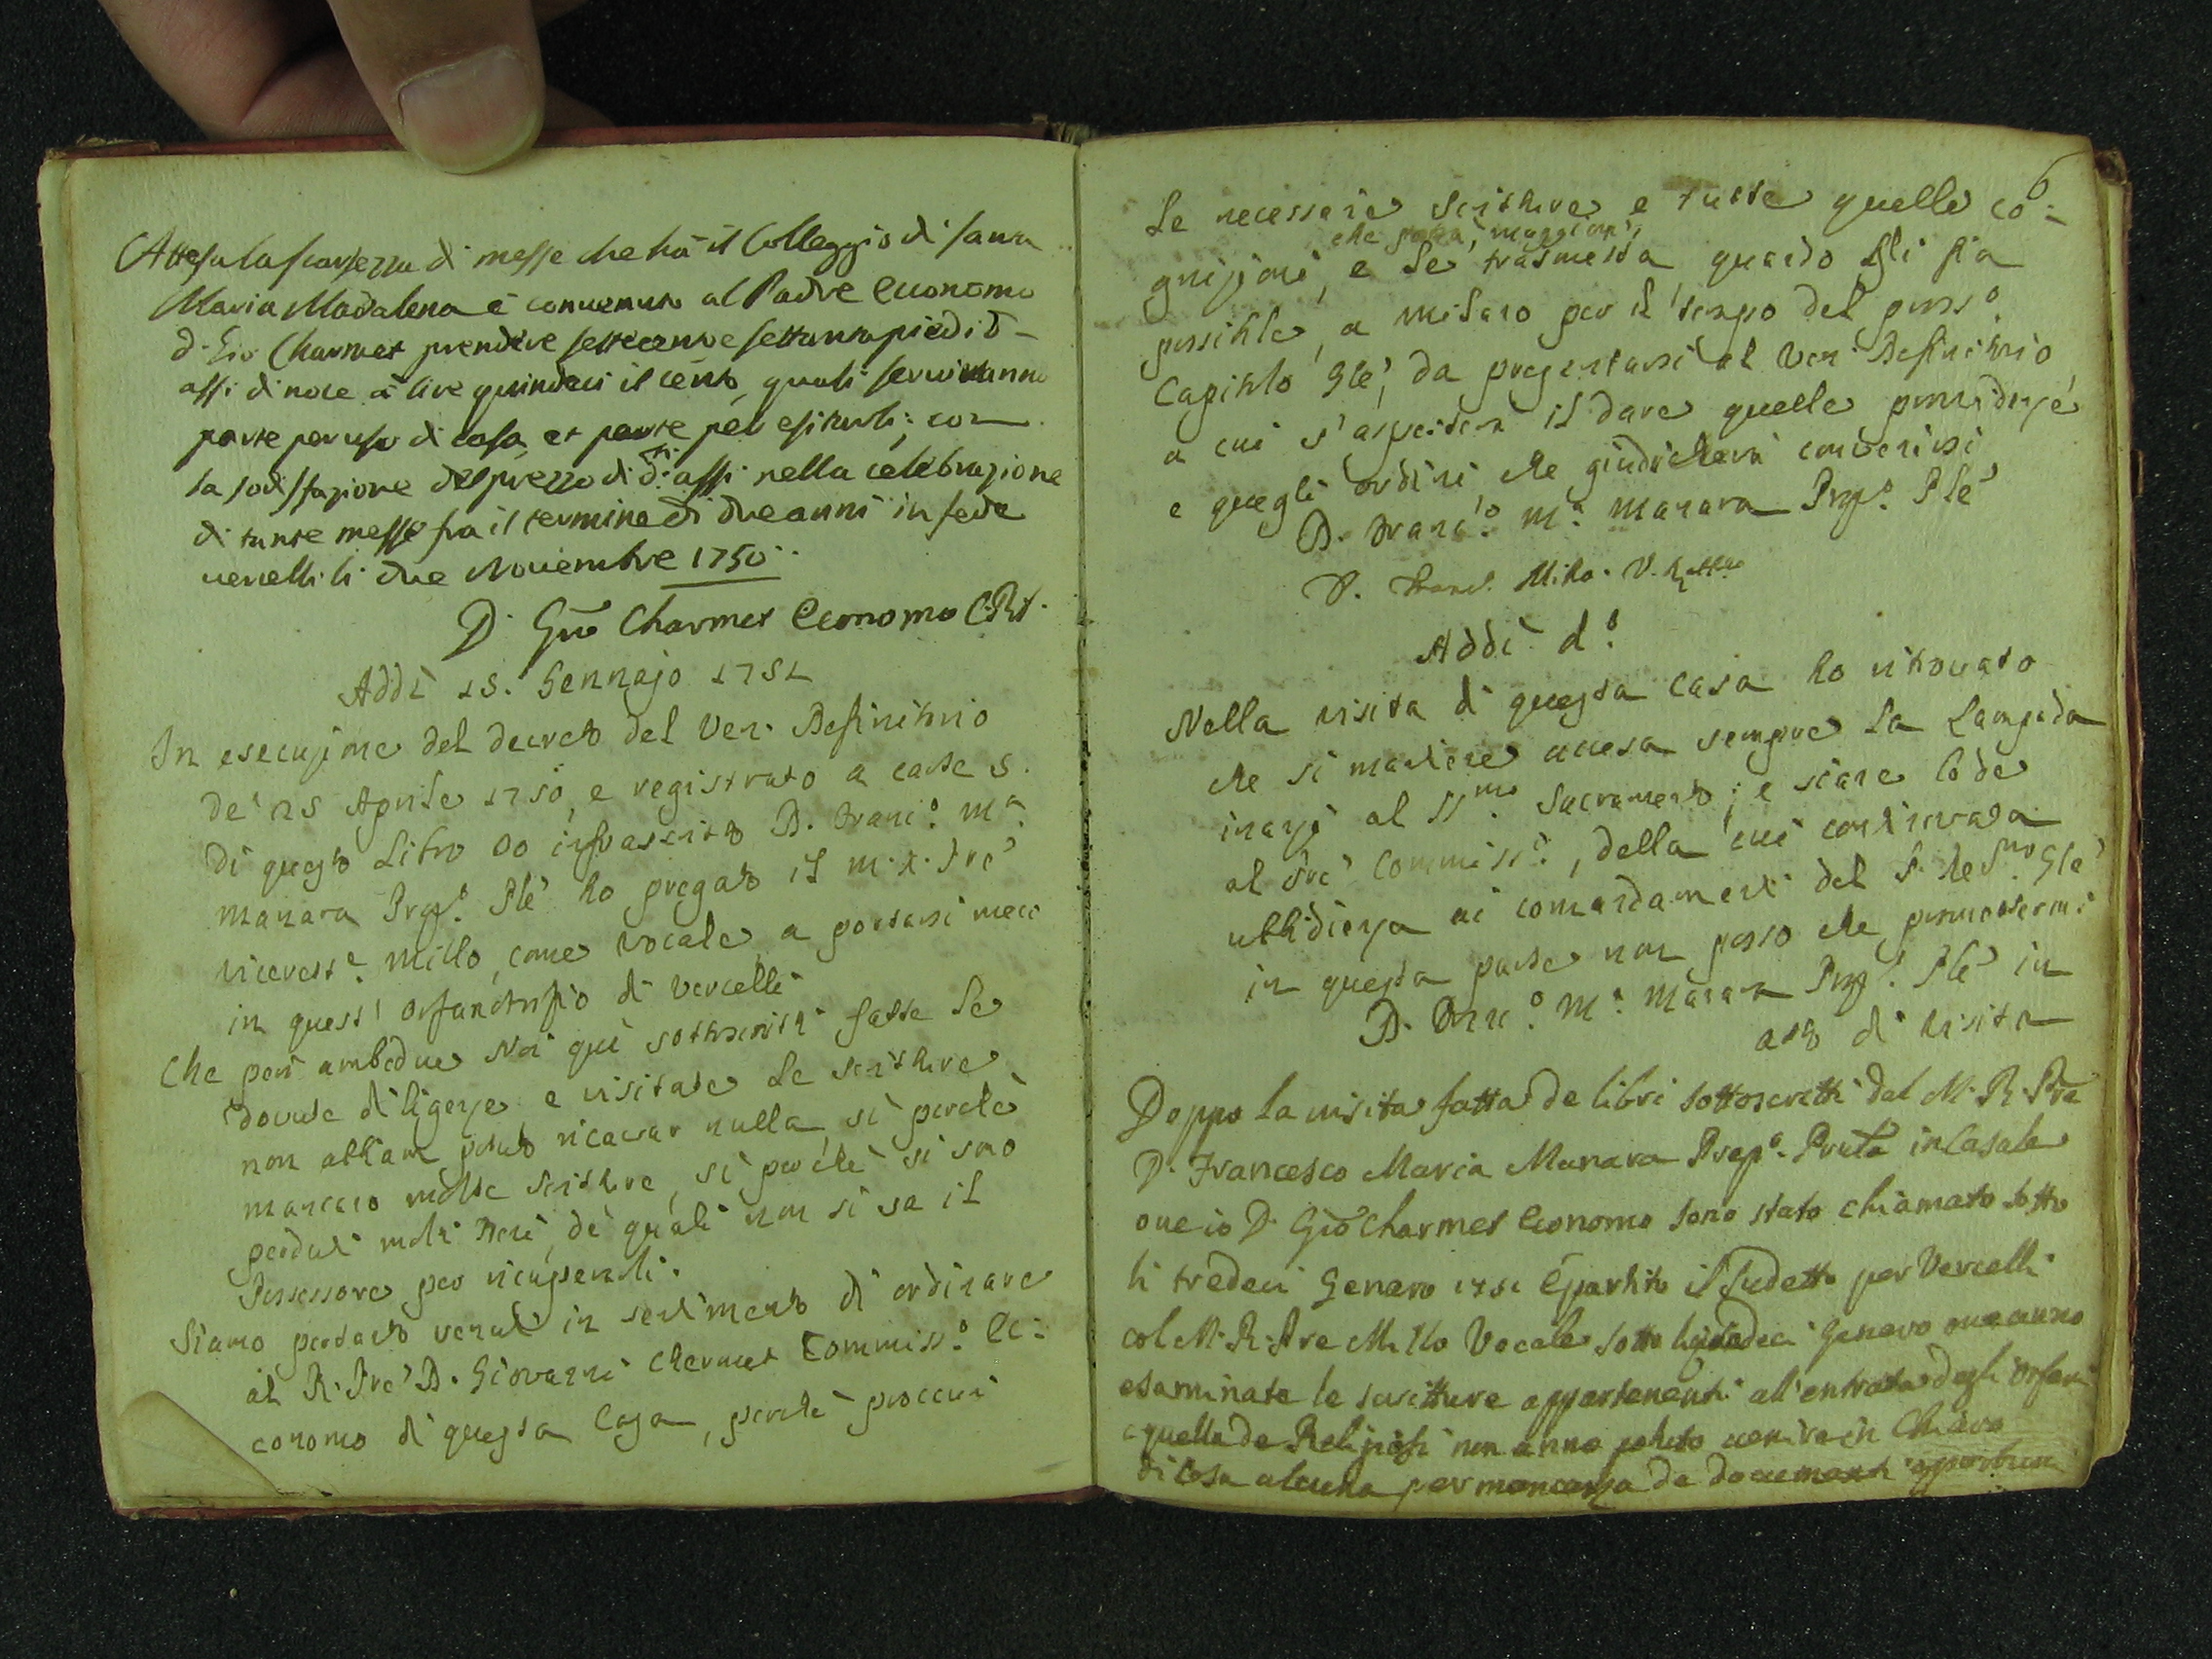 Attesa la scarsezza di messe che ha il Colleggio di Santa
Maria Madalena è convenuto al Padre Economo
d. Gio Charmet prendere settecento e settanta piedi d'
assi di noce à lire quindeci il cento, quali serviranno
parte per uso di casa, et parte per esitarli; con
la sodisfazione del prezzo di d.ti assi nella celebrazione
di tante messe fra il termine di due anni in fede
vercelli li due Novembre 1750..
D. Gio Charmet Economo C.R.S.
Addì 15. Gennajo 1751
In esecuzione del decreto del Ven. Definitorio
de' 25 Aprile 1750, e registrato a carte 5.
di questo Libro Io infrascritto D. Franc.o M.a
Manara Prep.o Ple' ho pregato il M. R. Pre'
Viceret.e Millo, come vocale, a portarsi meco
in quest' Orfanotrofio di Vercelli
Che però ambedue Noi quì sottoscritti fatte le
dovute diligenze e visitate le scritture
non abbiam potuto ricavar nulla, sì perchè
mancano molte scritture, sì perchè si sono
perduti molti Beni, de' quali non si sa il
Possessore per ricuperarli.
Siamo pertanto venuti in sentimento di ordinare
al R. Pre' D. Giovanni Charmet Commiss.o Ec:
conomo di questa Casa, perchè procuri
6
Le necessarie Scritture e tutte quelle co:
che potrà, maggiori,
gnizioni, e le trasmetta quando gli sia
possibile, a Milano per il tempo del pross.o
Capitolo Gle', da presentarsi al Ven. Definitorio
a cui s'aspetterà il dare quelle provvidenze
e quegli ordini che giudicherà convenirsi
D. Franc.o M.a Manara Prep.o Ple'
D. Franc. Millo. V. Rett.re
Addì d.o
Nella visita di questa Casa ho ritrovato
che si mantiene accesa sempre la Lampada
inanzi al SS.mo Sacramento; e siane lode
al Pre' Commiss.o, della cui continuata
ubbidienza ai comandamenti del P. Re.mo Gle'
in questa parte non posso che promettermi
D. Franc.o M.a Manara Prep.o Ple' in
atto di visita
Doppo la visita fatta de libri sottoscritti dal M. R. Pre
D. Francesco Maria Manara Prep.o Prule in Casale
ove io D. Gio Charmet Economo sono stato chiamato sotto
li tredeci Genaro 1751 è partito il sudetto per Vercelli
col M. R. Pre Millo Vocale sotto li quindeci Genaro ove anno
esaminate le scritture appartenenti all'entrata degli Orfani
e quella de Religiosi non anno potuto venire in Chiaro
di cosa alcuna per mancanza de documenti opportuni